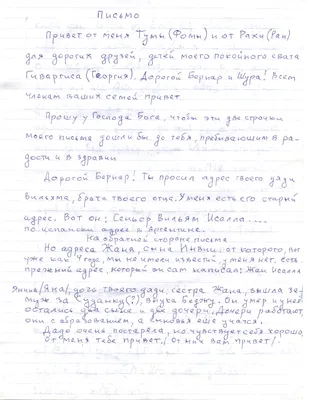 Письмо
Привет от меня Тумы (Фомы) и от Рахи (Раи)
для дорогих друзей, детей моего покойного свата
Гиваргиса (Георгия). Дорогой Бернар и Шура! Всем
членам ваших семей привет.
Прошу у Господа Бога, чтобы эти две строчки
моего письма дошли бы до тебя, пребывающим в ра-
дости и в здравии
Дорогой Бернар! Ты просил адрес твоего дяди
Вильяма, брата твоего отца. У меня есть его старый
адрес. Вот он: Сеньор Вильям Исалла.....
по испански адрес в Аргентине.
На обратной стороне письма
Но адреса Жана, сына Инвии, от которого, вот
уже как 4 года, мы не имели известий, у меня нет. Есть
прежний адрес, который он сам написал: Жан Исалла
Янина /Яна/, дочь твоего дяди, сестра Жана, вышла за-
муж за (?), внука. Он умер и у нее
остались два сына и две дочери. Дочери работают,
они с образованием, а сыновья еще учатся.
Дядо очень постарела, но чувствует себя хорошо,
от меня тебе привет, / от них вам привет /.